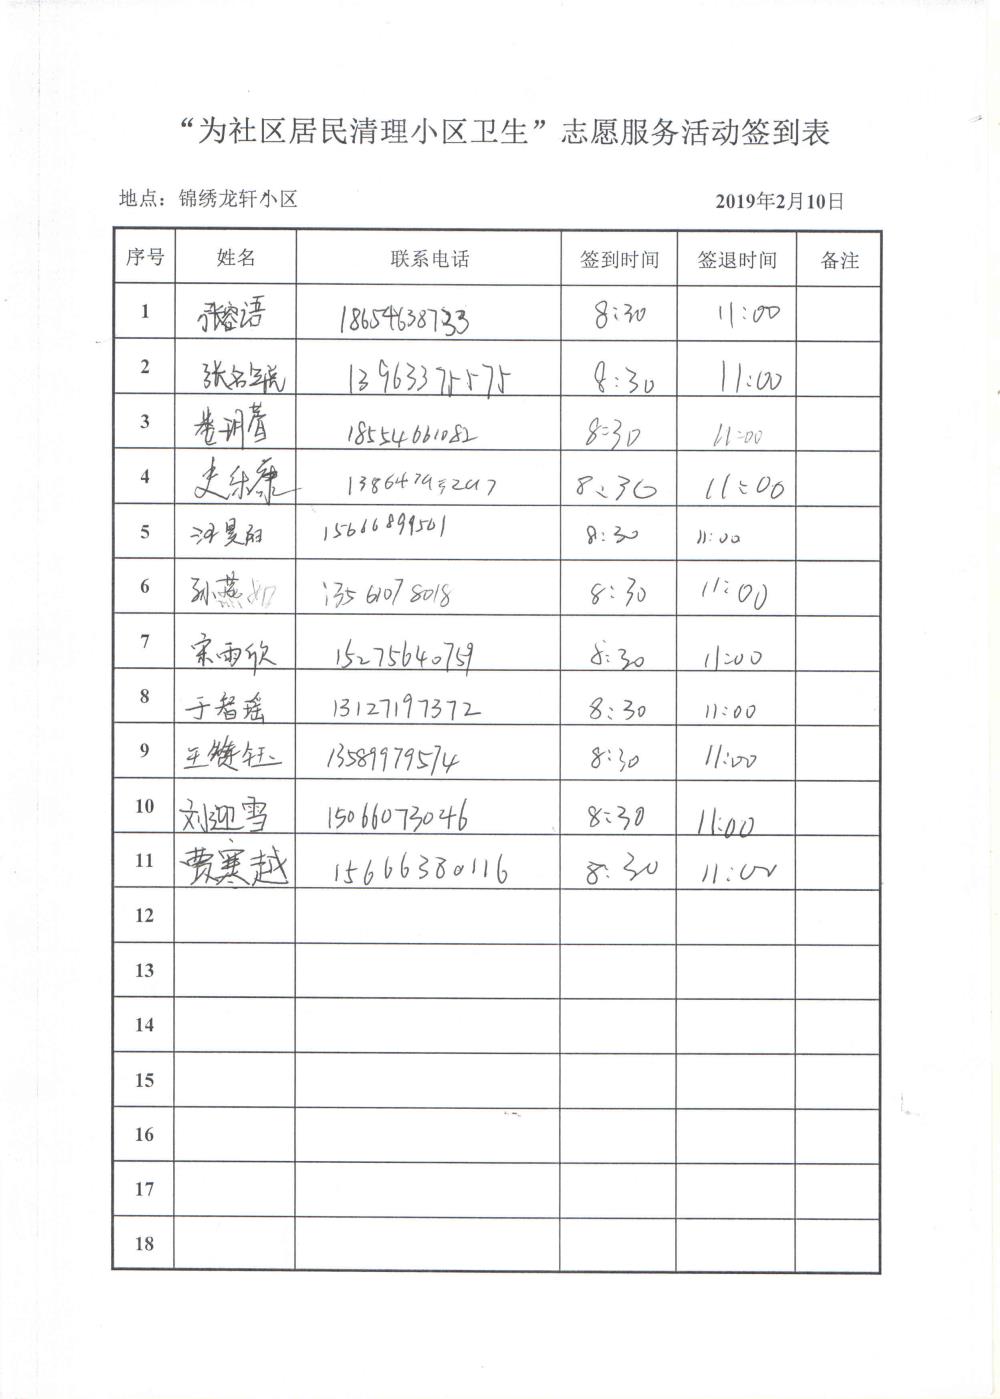 “为社区居民清理小区卫生”志愿服务活动签到表
地点：锦绣龙轩小区 2019年2月10日
序号 姓名 联系电话 签到时间 签退时间 备注
1 张容语 18654638733 8:30 11:00
2 张名 13963375575 8:30 11:00
3 18554661082 8:30 11:00
4 史乐康 8:30 11:00
5 15666899501 8:30 11:00
6 孙燕如 13561078018 8:30 11:00
7 宋雨欣 15275640759 8:30 11:00
8 于智瑶 13127197372 8:30 11:00
9 王健钰 13589979574 8:30 11:00
10 刘迎雪 15066073046 8:30 11:00
11 费寒越 15666380116 8:30 11:00
12
13
14
15
16
17
18